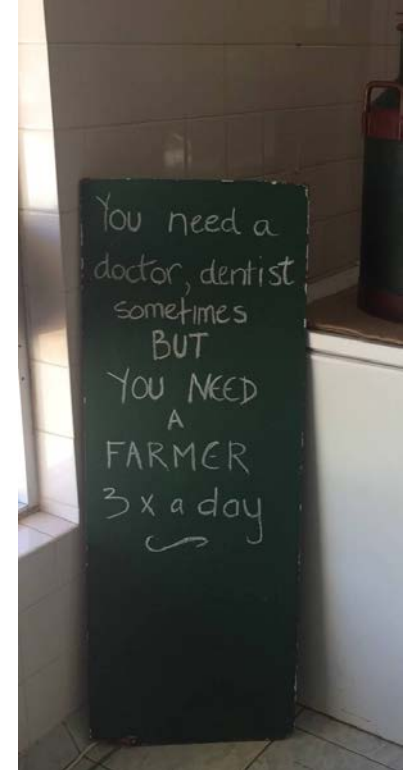 You need a
doctor, dentist
sometimes
BUT
YOU NEED
A
FARMER
3 x a day